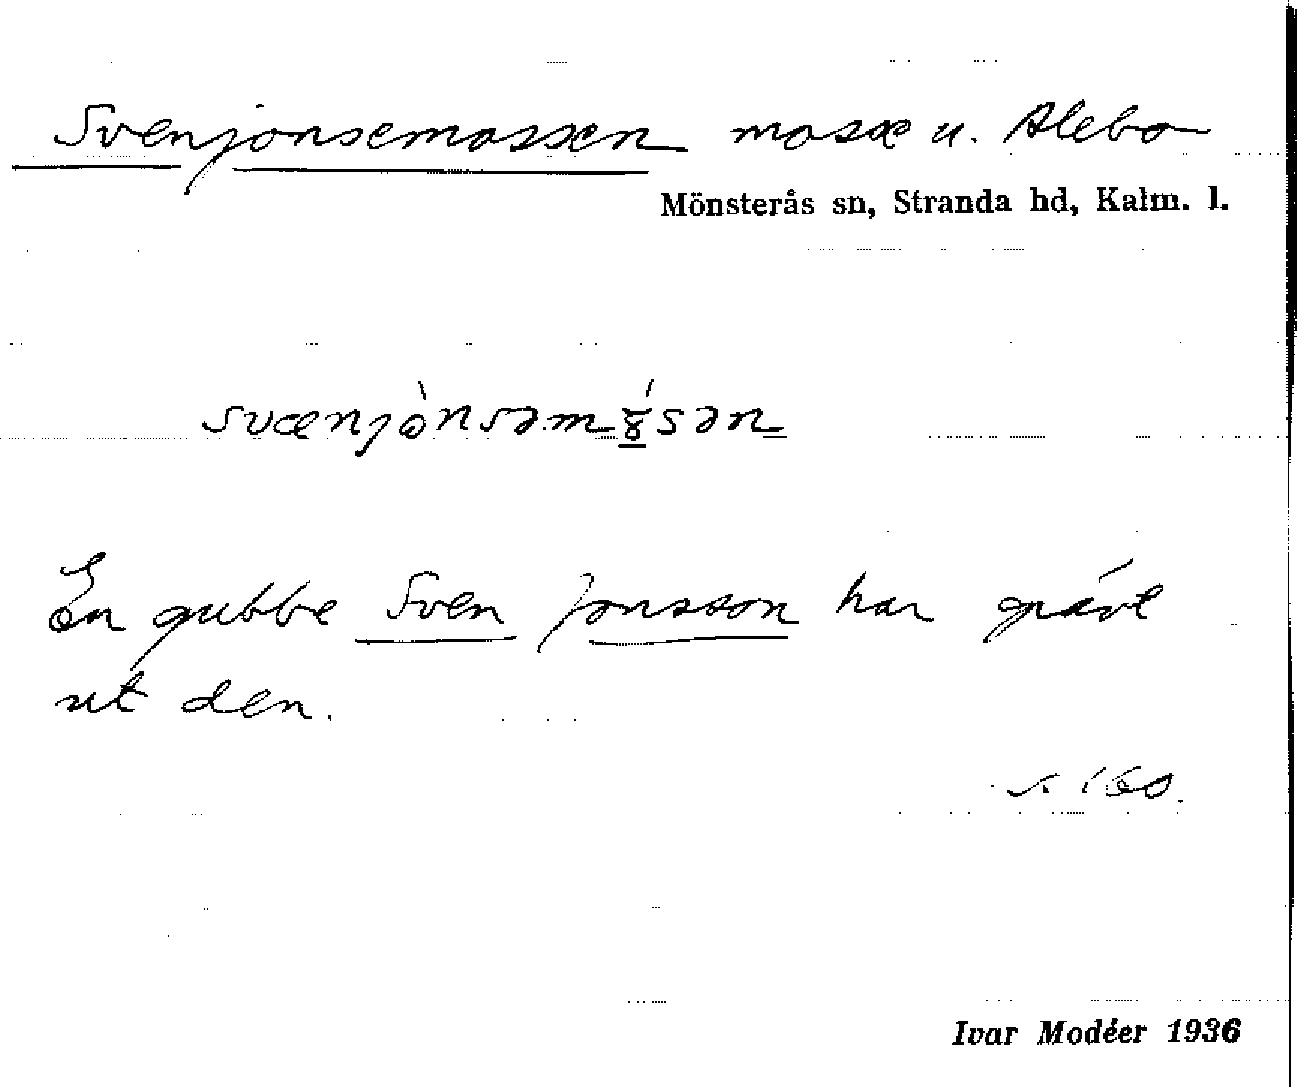 Svenjonsemossen mosse u. Alebo
Mönsterås sn, Stranda hd, Kalm. l.
svænjònsəmɤ́sən
En gubbe Sven Jonsson har grävt
ut den.
s. 160.
Ivar Modéer 1936